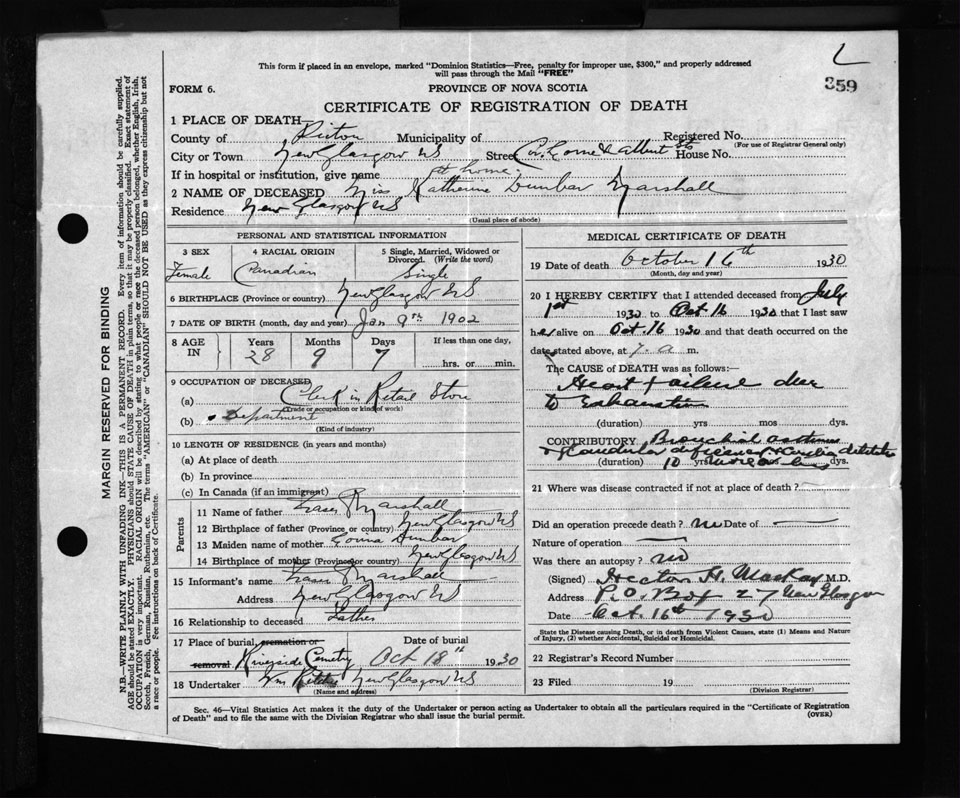 This form if placed in an envelope, marked "Dominion Statistics—Free, penalty for improper use, $300," and properly addressed
will pass through the Mail "FREE"
L
359
FORM 6.
PROVINCE OF NOVA SCOTIA
CERTIFICATE OF REGISTRATION OF DEATH
1 PLACE OF DEATH—
County of Pictou Municipality of Registered No.
(For use of Registrar General only)
City or Town New Glasgow NS Street Cor. Lorne & Albert Sts House No.
If in hospital or institution, give name at home.
2 NAME OF DECEASED Miss Katherine Dunbar Marshall
Residence New Glasgow NS
(Usual place of abode)
PERSONAL AND STATISTICAL INFORMATION
3 SEX 4 RACIAL ORIGIN 5 Single, Married, Widowed or Divorced. (Write the word)
Female Canadian Single
6 BIRTHPLACE (Province or country) New Glasgow NS
7 DATE OF BIRTH (month, day and year) Jan 9th 1902
8 AGE IN Years Months Days If less than one day,
28 9 7 hrs. or min.
9 OCCUPATION OF DECEASED
(a) Clerk in Retail Store
(Trade or occupation or kind of work)
(b) Department
(Kind of industry)
10 LENGTH OF RESIDENCE (in years and months)
(a) At place of death
(b) In province
(c) In Canada (if an immigrant)
Parents
11 Name of father Marshall
12 Birthplace of father (Province or country) New Glasgow NS
13 Maiden name of mother Dunbar
14 Birthplace of mother (Province or country) New Glasgow NS
15 Informant's name Marshall
Address New Glasgow NS
16 Relationship to deceased Father
17 Place of burial, cremation or removal Date of burial
Riverside Cemetry Oct 18th 1930
18 Undertaker Wm New Glasgow NS
(Name and address)
MEDICAL CERTIFICATE OF DEATH
19 Date of death October 16th 1930
(Month, day and year)
20 I HEREBY CERTIFY that I attended deceased from July
1st 1930 to Oct 16 1930 that I last saw
her alive on Oct. 16 1930 and that death occurred on the
date stated above, at 7. a m.
The CAUSE of DEATH was as follows:—
Heart Failure due
to Exhaustion
(duration) yrs mos dys.
CONTRIBUTORY Bronchial asthma
& Glandular deficiency
(duration) 10 yrs mos dys.
21 Where was disease contracted if not at place of death?
Did an operation precede death? no Date of
Nature of operation
Was there an autopsy? no
(Signed) Hector H. MacKay M.D.
Address P.O. Box 27 New Glasgow
Date Oct. 16th 1930
State the Disease causing Death, or in death from Violent Causes, state (1) Means and Nature of Injury, (2) whether Accidental, Suicidal or Homicidal.
22 Registrar's Record Number
23 Filed 19
(Division Registrar)
Sec. 46—Vital Statistics Act makes it the duty of the Undertaker or person acting as Undertaker to obtain all the particulars required in the "Certificate of Registration
of Death" and to file the same with the Division Registrar who shall issue the burial permit.
(OVER)
MARGIN RESERVED FOR BINDING
N.B.—WRITE PLAINLY WITH UNFADING INK—THIS IS A PERMANENT RECORD. Every item of information should be carefully supplied.
AGE should be stated EXACTLY. PHYSICIANS should STATE CAUSE OF DEATH in plain terms, so that it may be properly classified. Exact statement of
OCCUPATION is very important. RACIAL ORIGIN will be described by stating to what people or race the deceased person belonged, whether English, Irish,
Scotch, French, German, Russian, Ruthenian, etc. The terms "AMERICAN" or "CANADIAN" SHOULD NOT BE USED as they express citizenship but not
a race or people. See instructions on back of Certificate.